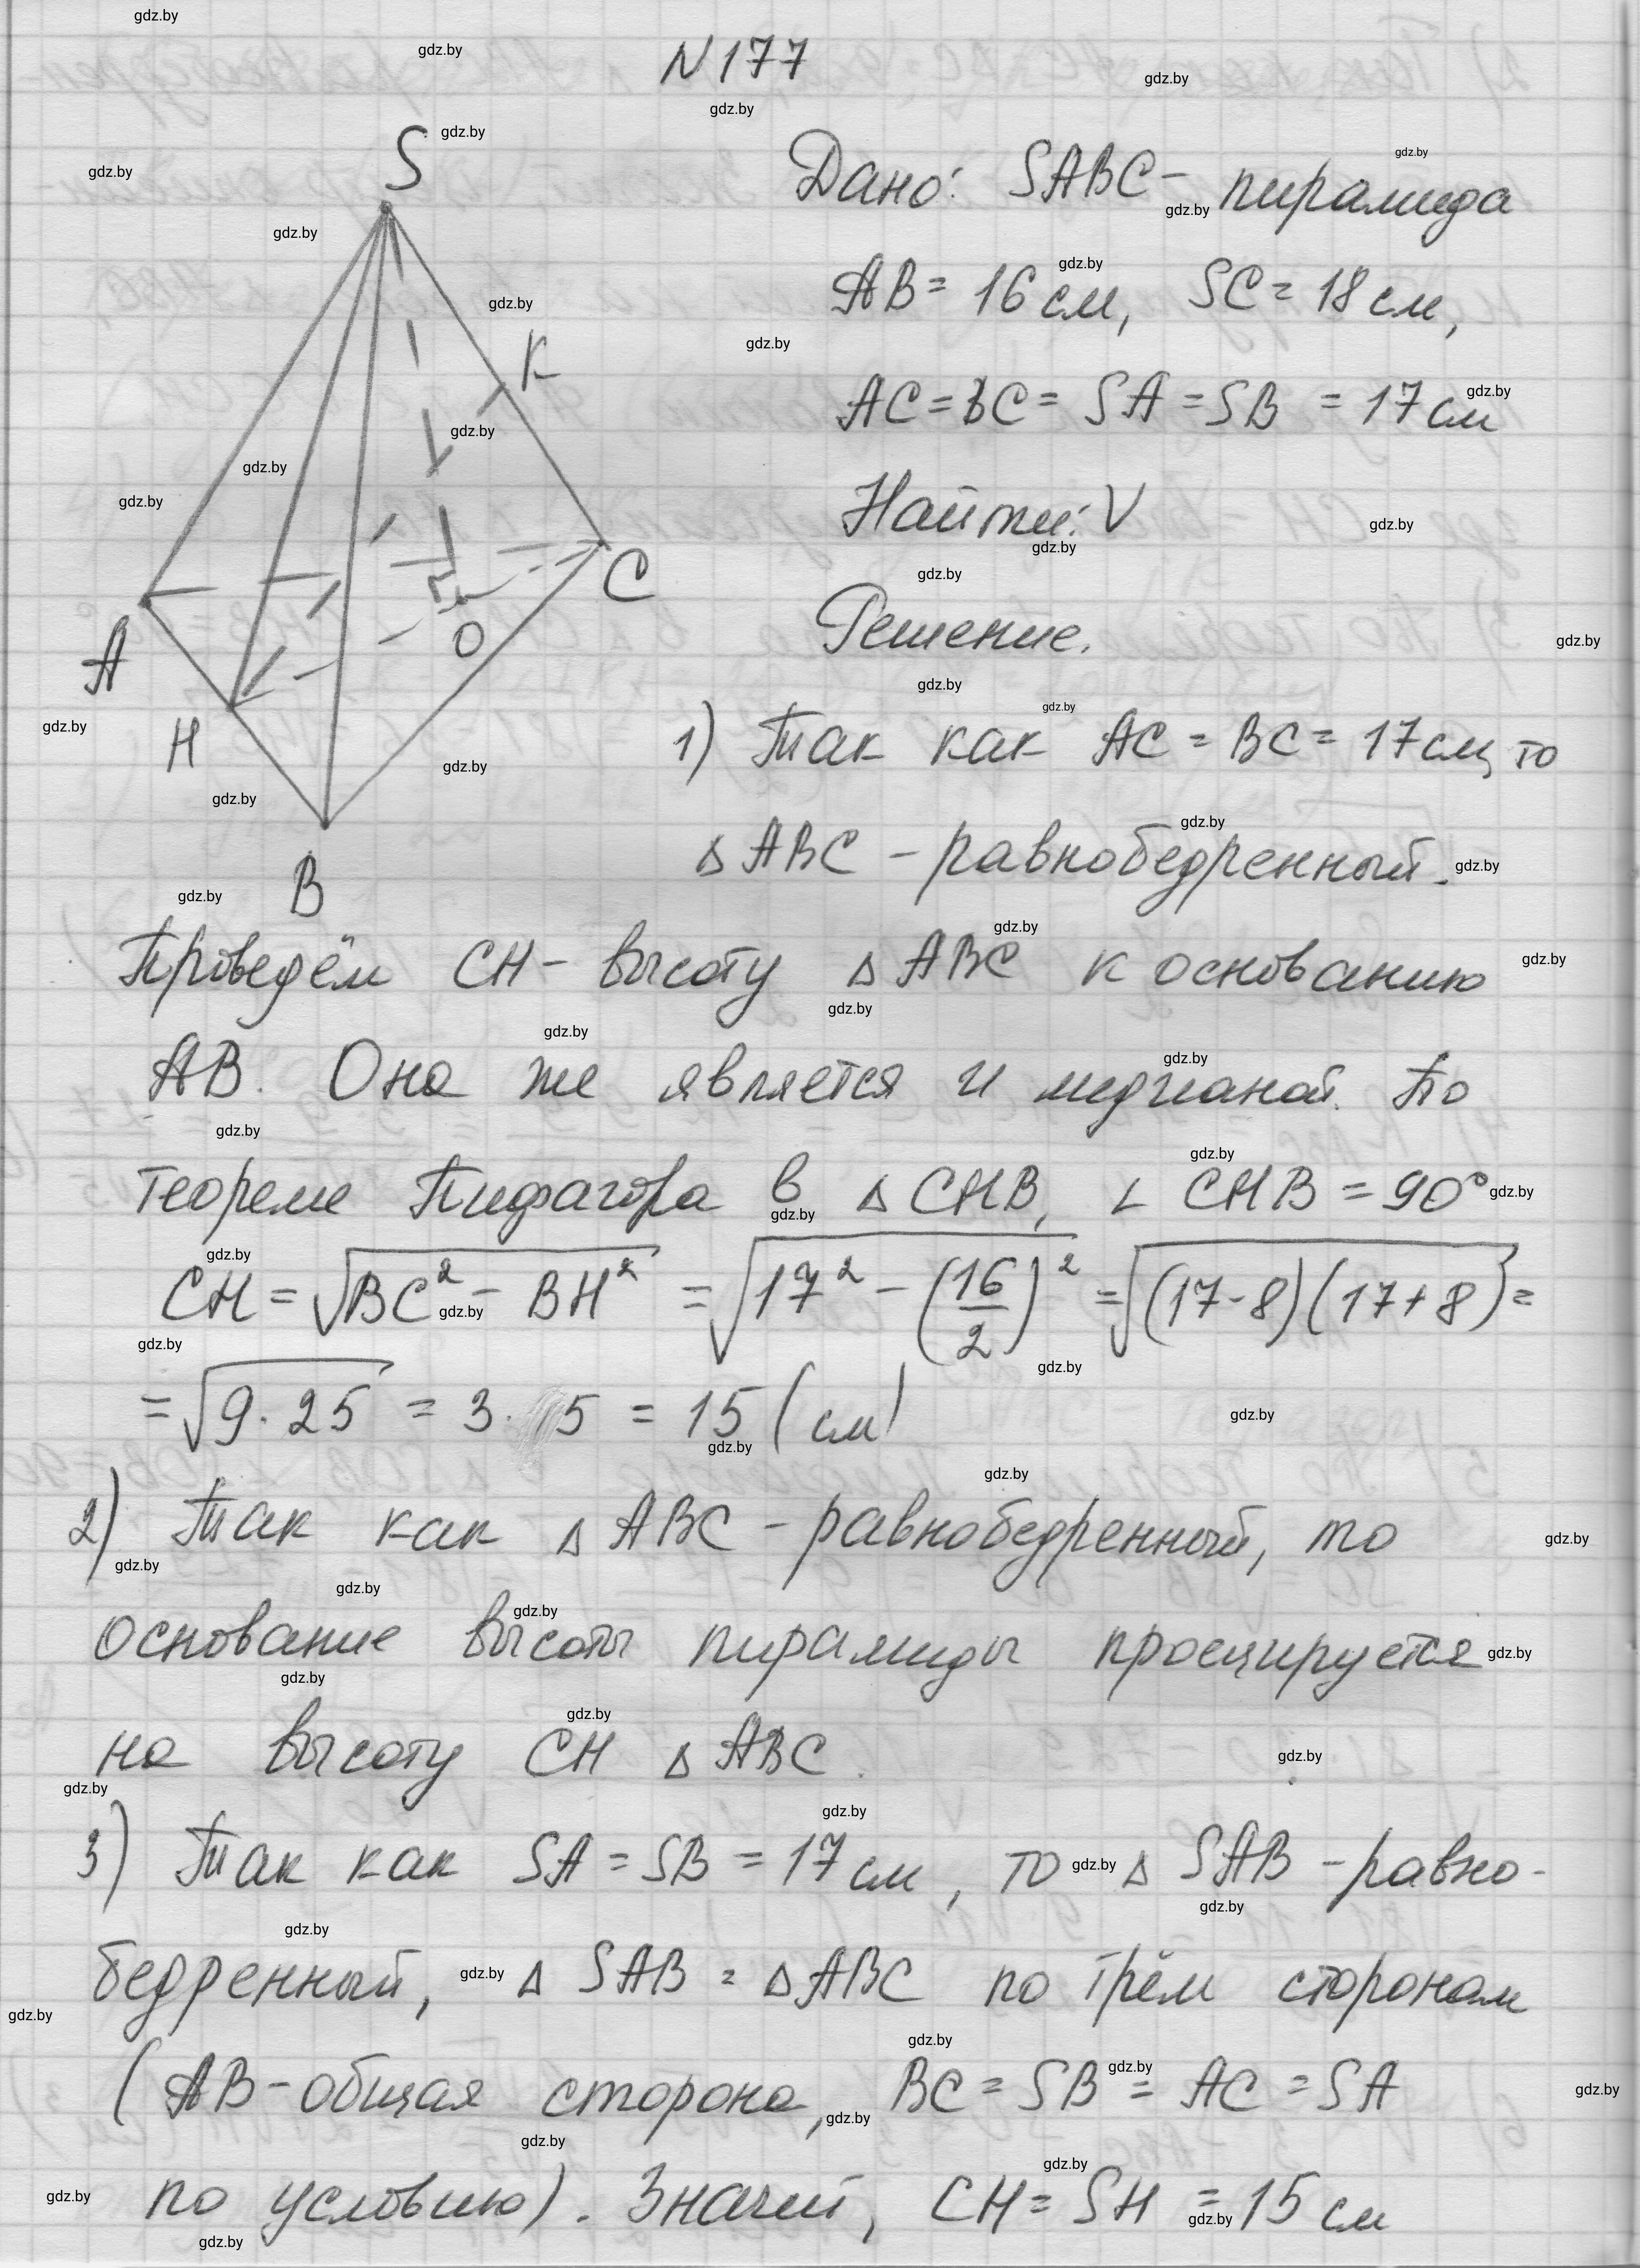 N 177
S
Дано: SABC - пирамида
AB = 16 см, SC = 18 см,
K
AC = BC = SA = SB = 17 см
Найти: V
C
O
Решение.
A
H
1) Так как AC = BC = 17 см, то
△ABC - равнобедренный.
B
Проведём CH - высоту △ABC к основанию
AB. Она же является и медианой. По
теореме Пифагора в △CHB, ∠CHB = 90°
CH = √(BC² - BH²) = √(17² - (16/2)²) = √((17-8)(17+8)) =
= √(9·25) = 3·5 = 15 (см)
2) Так как △ABC - равнобедренный, то
основание высоты пирамиды проецируется
на высоту CH △ABC.
3) Так как SA = SB = 17 см, то △SAB - равно-
бедренный, △SAB = △ABC по трём сторонам
(AB - общая сторона, BC = SB = AC = SA
по условию). Значит, CH = SH = 15 см
gdz.by